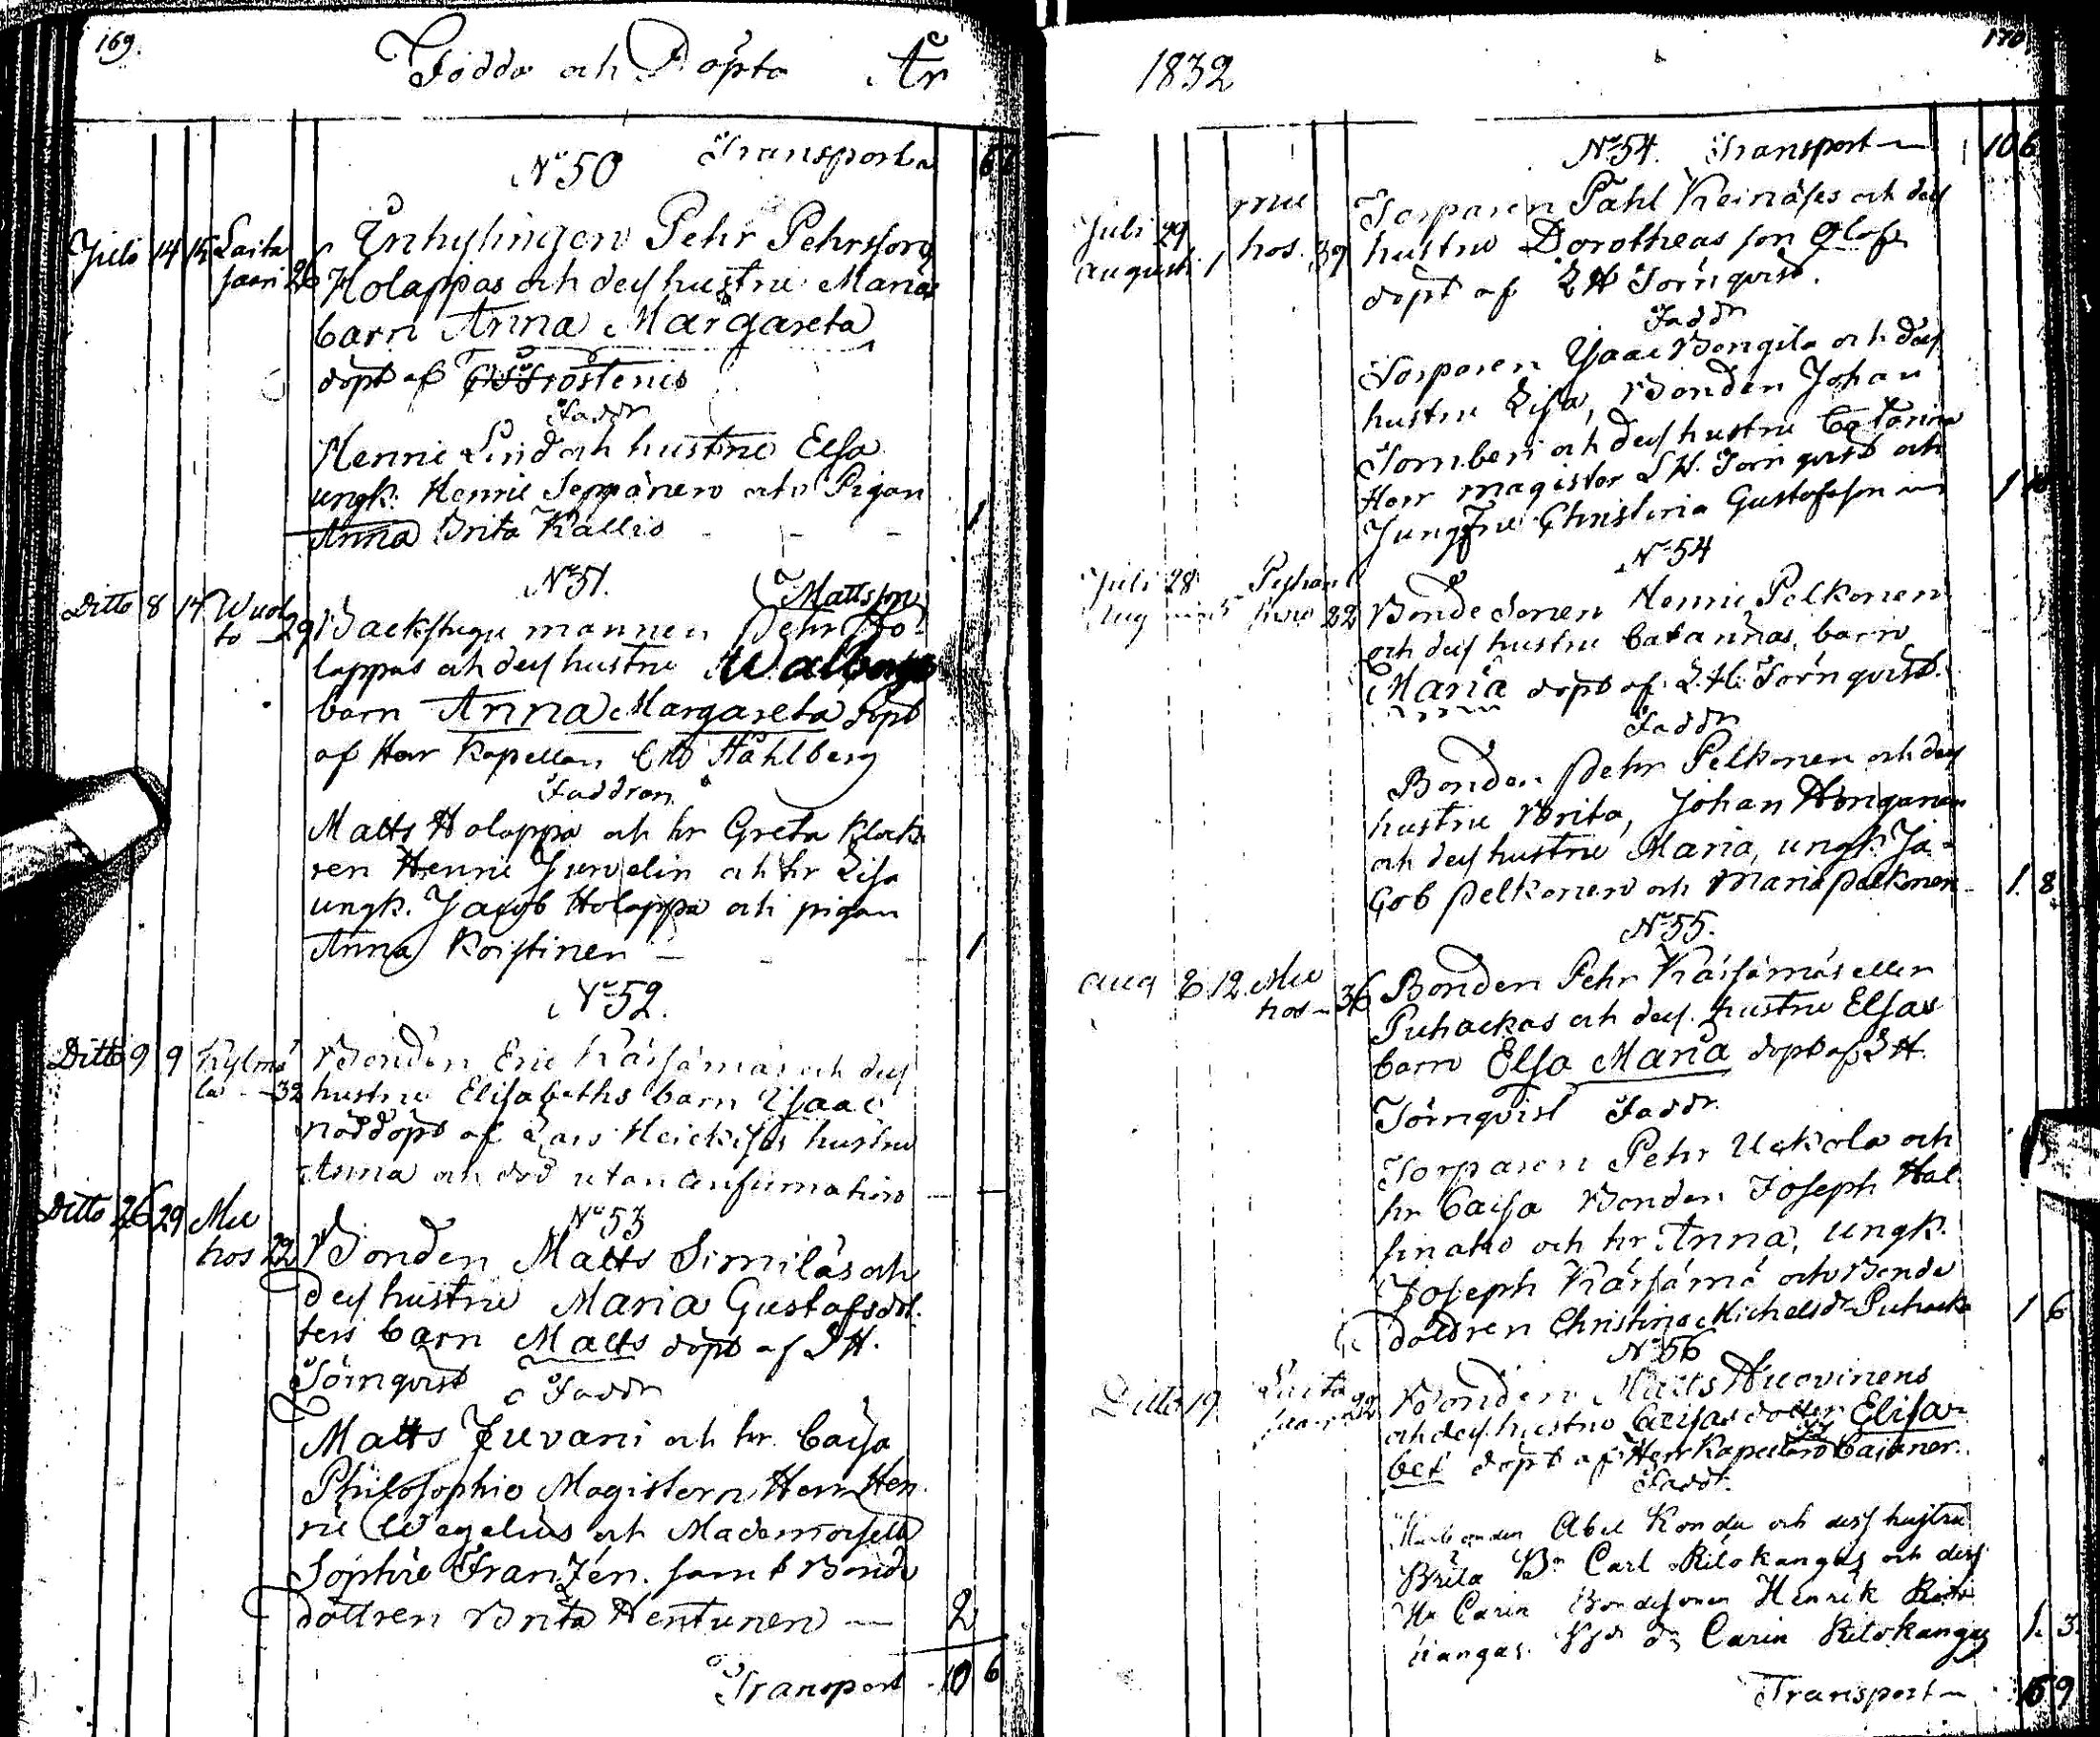 169.
Födda och Döpta År
N:o 50 Transport
Juli 14 15 Laita
saari 26
Inhysingen Pehr Pehrsson
Holappas och dess hustru Marias
barn Anna Margareta
döpt af Frosterus
Faddr
Henric Lind och hustru Elsa
ungk. Henric Seppänen och Pigan
Anna Brita Kallio - - - 1
N:o 51.
Mattsson
Ditto 8 14 Wuol
to 29
Backstugu mannen Pehr Ho-
lappas och dess hustru Walborgs
barn Anna Margareta döpt
af Herr Kapellan Ståhlberg
Faddran
Matts Holappa och hr Greta Klock
ren Henric Jurvelin och hr Lisa
ungk. Jacob Holappa och pigan
Anna Koistinen - - - 1
N:o 52.
Ditto 9 9 Kylmä
lä - 32
Bonden Eric Kärsämäs och dess
hustru Elisabeths barn Isaac
nöddöpt af Lars Heickises hustru
Anna och död utan
Ditto 26 29 Mu
hos 22
N:o 53
Bonden Matts Similäs och
dess hustru Maria Gustafsdot
ters barn Matts döpt af L H.
Törnqvist Faddr
Matts Juvani och hr. Caisa
Philosophie Magistern Herr Hen
ric Wegelius och Mademoiselle
Sophie Franzén. samt Bonde
dottren Brita Hentunen — 2
Transport 10 6
1832
170
N:o 54. Transport — 10 6
Juli 29
Augusti 1
mu
hos. 39
Torparen Pahl Keinäses och dess
hustru Dorotheas son Olof
döpt af L H Törnqvist.
Faddr
Torparen Isaac Bongila och dess
hustru Lisa, Bonden Johan
Tomberi och dess hustru Catarina
Herr magister L H. Törnqvist och
Jungfru Christina Gustafsson 1
N:o 54
Juli 28
22
Bonde Sonen Henric Pelkonen
och dess hustru Catarinas, barn
Maria döpt af L. H. Törnqvist.
Faddr
Bonden Pehr Pelkonen och dess
hustru Brita, Johan Honganen
och dess hustru Maria, ungk. Ja-
Cob Pelkonen och Maria Pelkonen 1. 8
N:o 55.
Aug 6 12. Mu
hos - 36
Bonden Pehr Kärsämäs eller
Puhackas och dess hustru Elsas
barn Elsa Maria döpt af L H.
Törnqvist Faddr.
Torparen Pehr Uckola och
hr Caisa Bonden Joseph Hal
sinaho och hr Anna, ungk.
Joseph Kärsämä och Bonde
dottren Christina Michelsdr Puhacka 1 6
N:o 56
Ditto 19. Laita
saari 22
Bonden Matts Huovinens
och dess hustru Caisas dotter Elisa-
bet döpt af Herr Kapellan Cajaner.
Faddr.
Abel Kondu och dess hustru
Brita Bn Carl Ritokangas och dess
Hu Carin Bondesonen Henrik Rito
kangas. Carin Ritokangas 1. 3.
Transport — 15 9